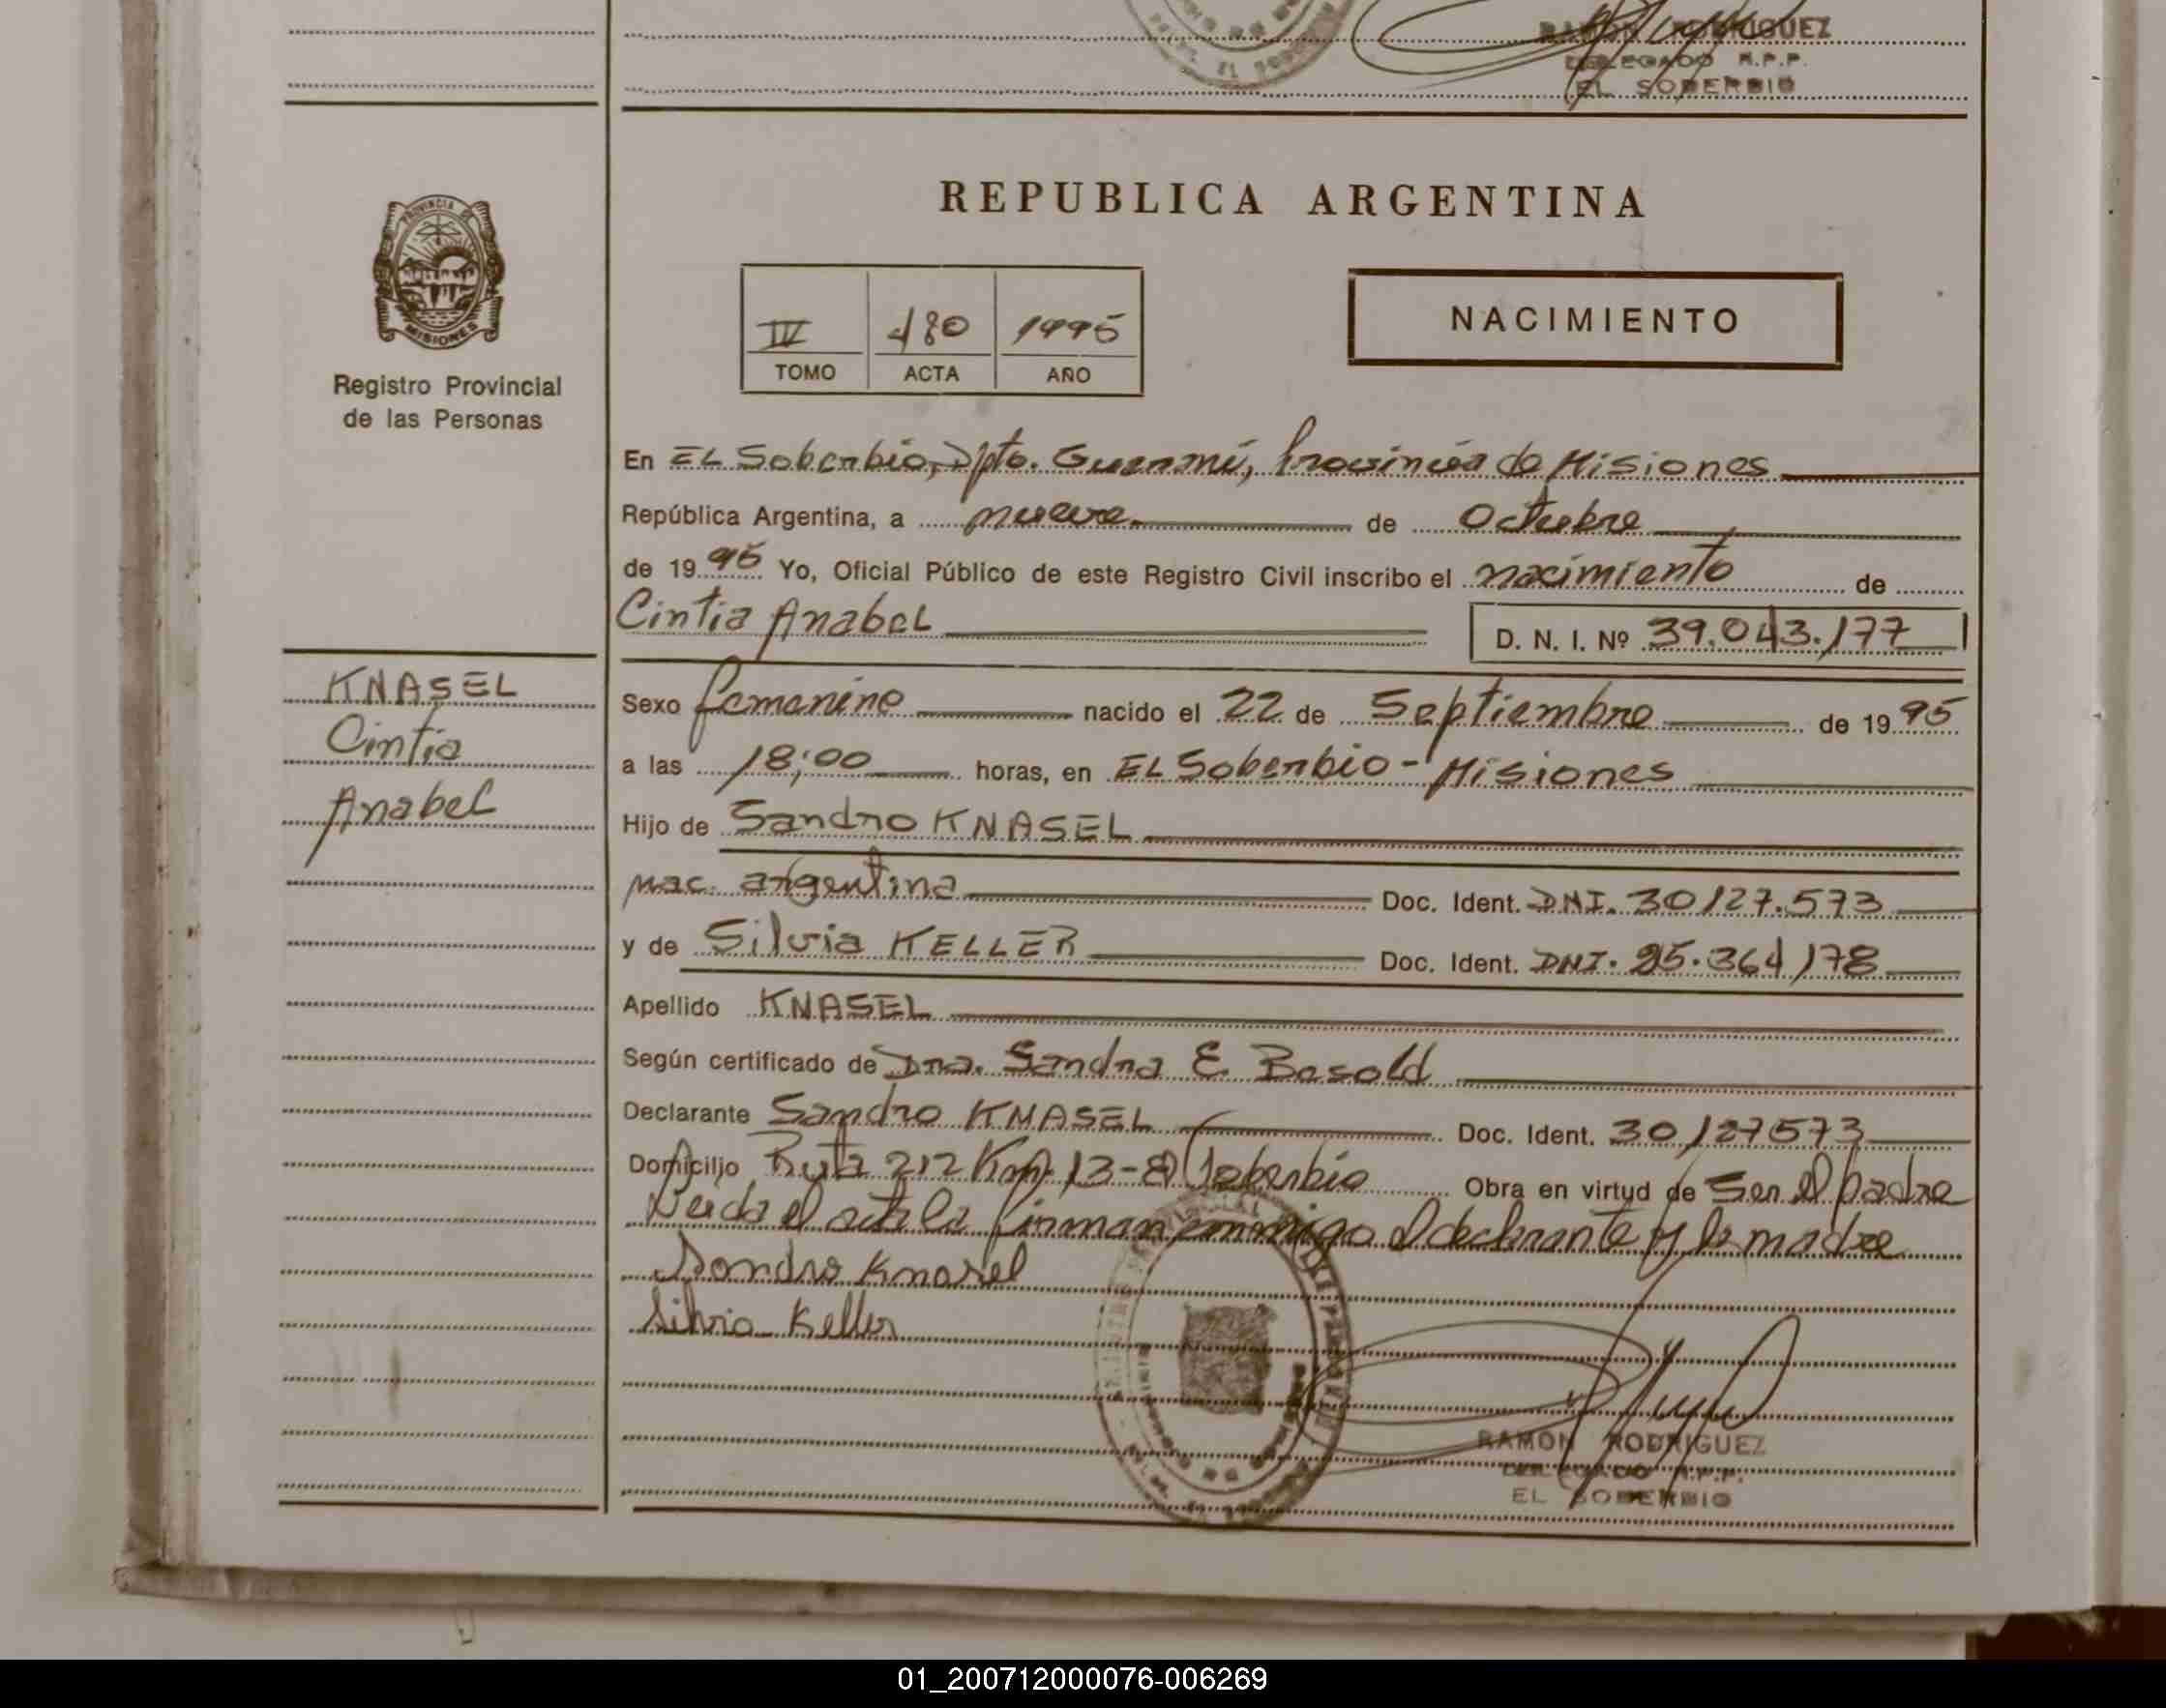 RAMON RODRIGUEZ
DELEGADO R.P.P.
EL SOBERBIO
REPUBLICA ARGENTINA
PROVINCIA DE
MISIONES
Registro Provincial
de las Personas
IV 180 1995
TOMO ACTA AÑO
NACIMIENTO
En EL Soberbio, Dpto. Guaraní, Provincia de Misiones
República Argentina, a nueve de Octubre
de 1995 Yo, Oficial Público de este Registro Civil inscribo el nacimiento de
Cintia Anabel D. N. I. Nº 39.043.177
KNASEL
Cintia
Anabel
Sexo femenino nacido el 22 de Septiembre de 1995
a las 18:00 horas, en EL Soberbio - Misiones
Hijo de Sandro KNASEL
nac. argentina Doc. Ident. DNI. 30127.573
y de Silvia KELLER Doc. Ident. DNI. 25.364178
Apellido KNASEL
Según certificado de Dra. Sandra E. Basold
Declarante Sandro KNASEL Doc. Ident. 30127573
Domicilio Ruta 212 Km 13 - El Soberbio Obra en virtud de Ser el padre
Leida el acta la firman conmigo el declarante y la madre
Sandro Knasel
Silvia Keller
RAMON RODRIGUEZ
DELEGADO R.P.P.
EL SOBERBIO
01_200712000076-006269